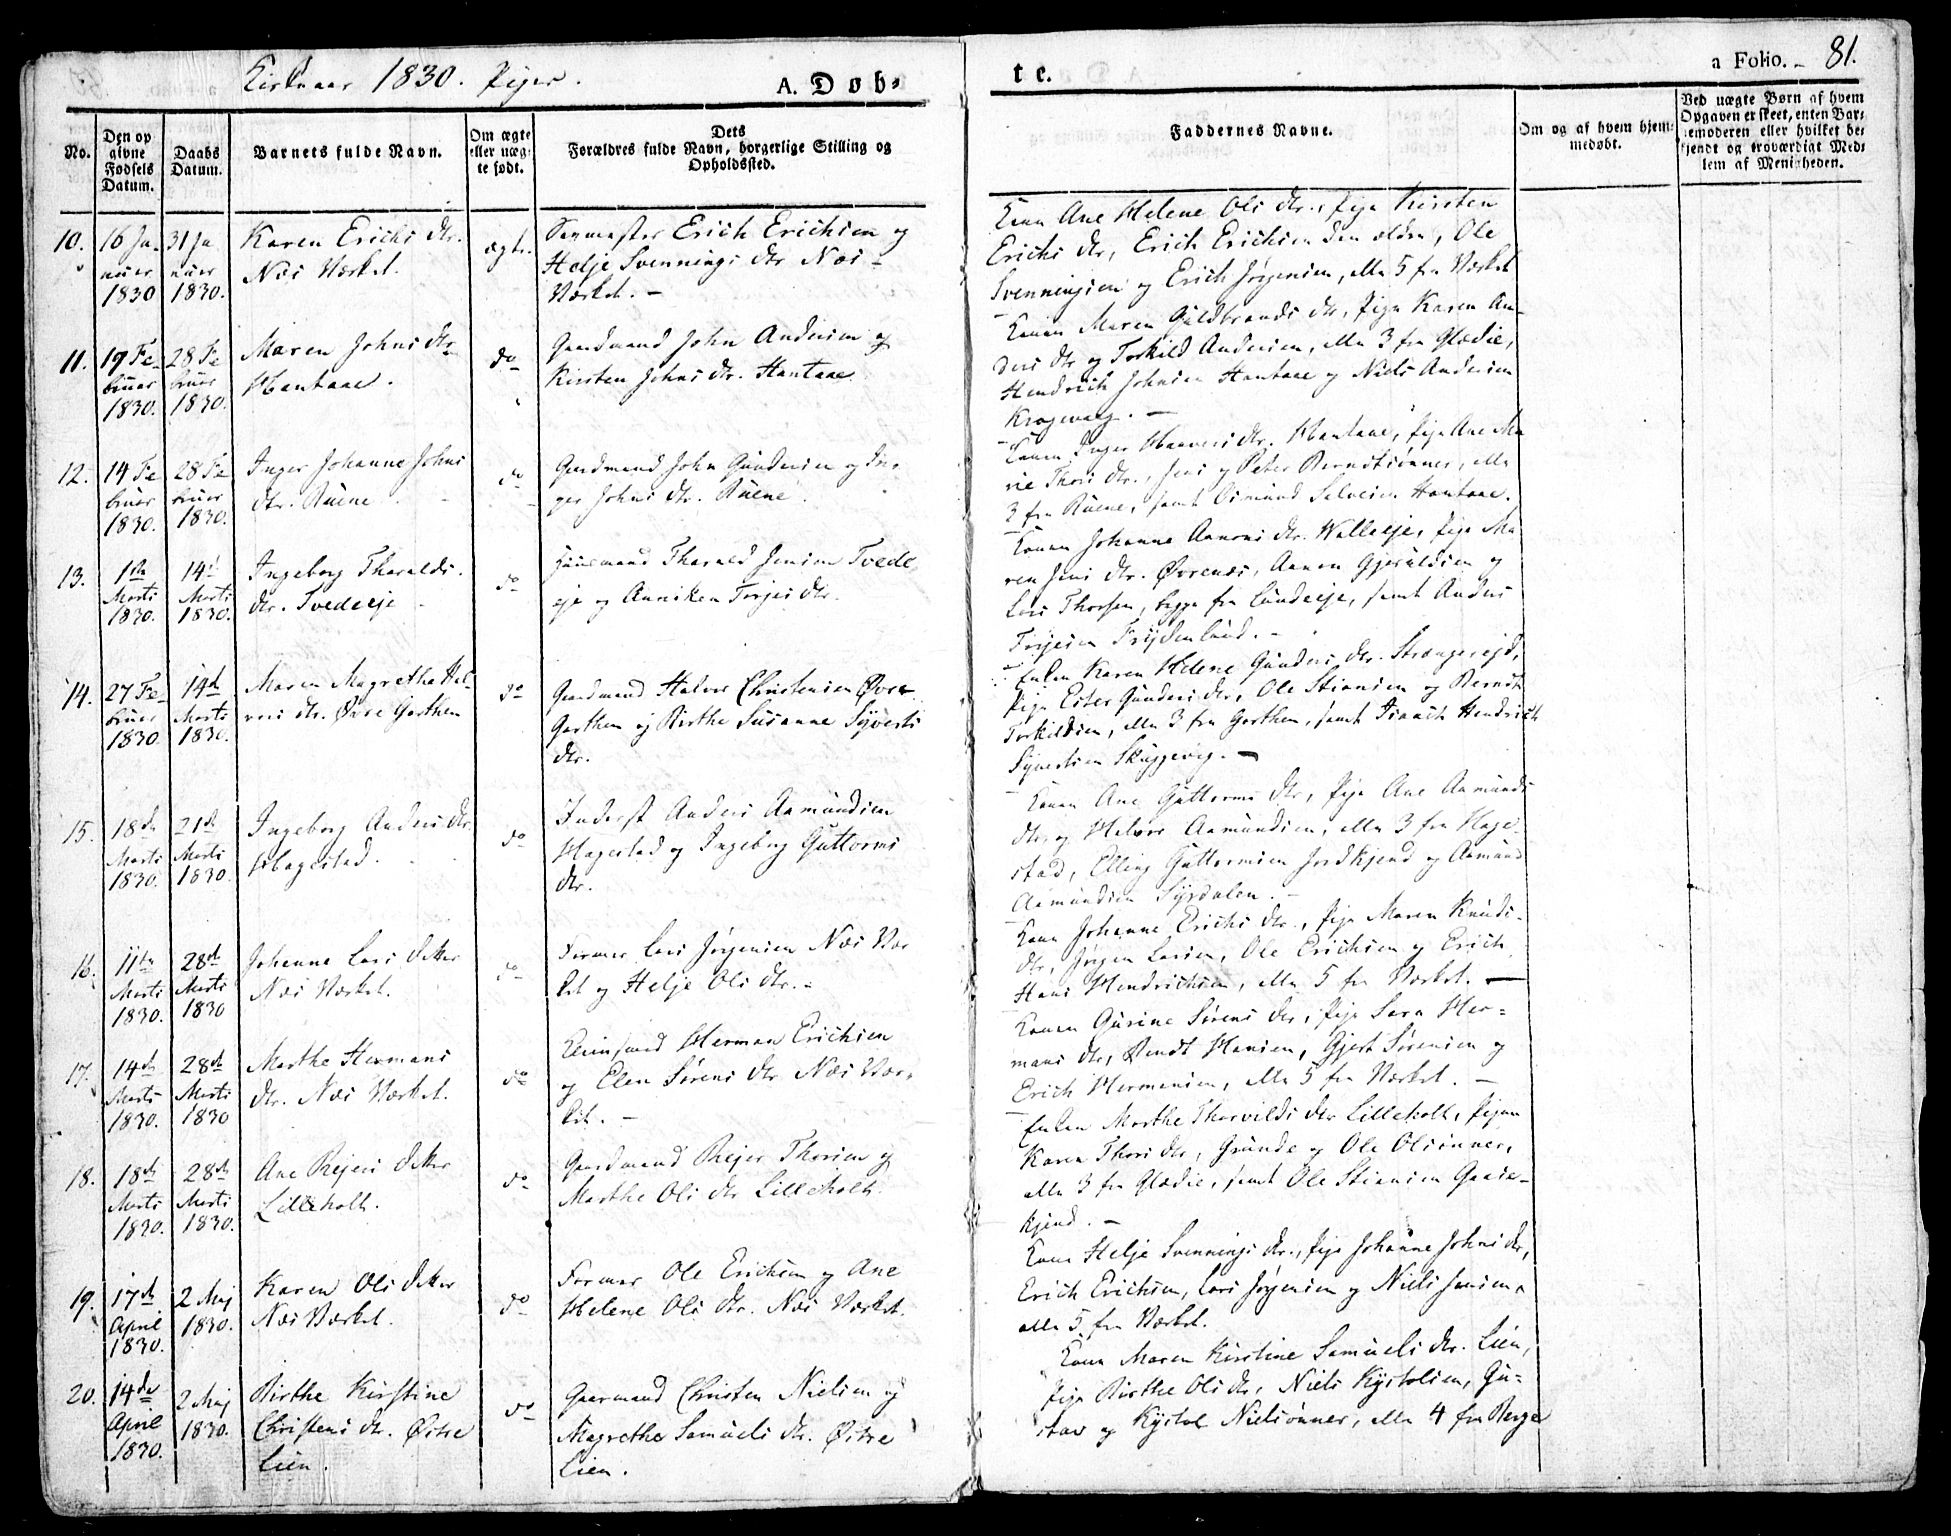 Kirkeaar 1830. Piger.
A. Døb-
te.
a Folio. 81.
No.
Den op
givne
Fødsels
Datum.
Daabs
Datum.
Barnets fulde Navn.
Om ægte
eller uæg-
te født.
Dets
Forældres fulde Navn, borgerlige Stilling og
Opholdssted.
Faddernes Navne.
Om og af hvem hjem-
medøbt.
Ved uægte Børn af hvem
Opgaven er skeet, enten Bar-
nemoderen eller hvilket be-
kjendt og troværdigt Med-
lem af Menigheden.
10.
16 Ja-
nuar
1830
31 Ja
nuar
1830.
Karen Erichs dtr.
Næs Værket.
ægte.
Erich Erichsen og
Helje Svennings dtr Næs-
Værket. -
Konen Ane Helene Ols dtr., Pige Kirsten
Erichs dtr, Erich Erichsen den ældre, Ole
Svenningsen og Erich Jørgensen, alle 5 fra Værket
11.
19 Fe-
bruar
1830.
28 Fe
bruar
1830.
Maren Johns dtr
Hantaae.
do
Gaardmand John Andersen og
Kirsten Johns dtr. Hantaae
Konen Maren Guldbrands dtr, Pige Karen An-
ders dtr og Torkild Andersen, alle 3 fra Glødie,
Hendrich Johnsen Hantaae og Niels Andersen
Krogevaag. -
12.
14 Fe
bruar
1830.
28 Fe
bruar
1830.
Inger Johanne Johns
dtr. Ruene
do
Gaardmand John Gundersen og In-
ger Johns dtr. Ruene.
Konen Inger Haavers dtr. Hantaae, Pige Ane Ma
rie Thors dtr., Jens og Peter Berndtsønner, alle
3 fra Ruene, samt Osmund Salvesen Hantaae.
13.
1ste
Marts
1830.
14d
Marts
1830.
Ingeborg Tharalds
dtr. Tvedeeje
do
Huusmand Tharald Jensen Tvede
eje og Anniken Torjes dtr.
Konen Johanne Aanons dtr. Walleeje, Pige Ma
ren Jens dtr. Øvrenæs, Aanon Gjeruldsen og
Lars Thorsen, begge fra Lundeeje, samt Anders
Torjesen Frydenlund. -
14.
27 Fe-
bruar
1830
14d
Marts
1830.
Maren Magrethe Hal-
vors dtr. Øvre Garthen
do
Gaardmand Halvor Christensen Øvre
Garthen og Birthe Susanne Syverts
dtr.
Enken Karen Helene Gunders dtr. Strængereid,
Pige Ester Gunders dtr, Ole Stiansen og Berndt
Torkildsen, alle 3 fra Garthen, samt Isaach Hendrich
Syvertsen Skuggevig. -
15.
18de
Marts
1830.
21de
Marts
1830
Ingeborg Anders dtr
Hagestad.
do
Inderst Anders Aamundsen
Hagestad og Ingeborg Guttorms
dtr.
Konen Ane Guttorms dtr, Pige Ane Aamunds
dtr, og Halvor Aamundsen, alle 3 fra Hage-
stad, Elling Guttormsen Jordkjend og Aamund
Aamundsen Syrdalen. -
16.
11te
Marts
1830.
28de
Marts
1830
Johanne Lars datter
Næs Værket.
do
Former Lars Jørgensen Næs Vær
ket og Helje Ols dtr. -
Konen Johanne Erichs dtr., Pige Maren Knuds-
dtr, Jørgen Larsen, Ole Erichsen og Erich
Hans Hendrichsen, alle 5 fra Værket. -
17.
14de
Marts
1830.
28de
Marts
1830
Marthe Hermans
dtr. Næs Værket.
do
Herman Erichsen
og Elen Sørens dtr Næs Vær-
ket. -
Konen Gurine Sørens dtr, Pige Sara Her-
mans dtr, Bendt Hansen, Gjert Sørensen og
Erich Hermansen, alle 5 fra Værket. -
18.
18de
Marts
1830.
28de
Marts
1830.
Ane Rejers datter
Lilleholt.
do
Gaardmand Rejer Thorsen og
Marthe Ols dtr Lilleholt.
Enken Marthe Thorvilds dtr Lilleholt, Pigen
Karen Thors dtr, Grunde og Ole Olsønner,
alle 3 fra Glødie, samt Ole Stiansen Gaase-
kjend. -
19.
17de
April
1830.
2 Maj
1830.
Karen Ols datter
Næs Værket.
do
Former Ole Erichsen og Ane
Helene Ols dtr. Næs Værket.
Konen Helje Svennings dtr., Pige Johanne Johns dtr,
Erich Erichsen, Lars Jørgensen og Niels Jensen,
alle 5 fra Værket.
20.
14de
April
1830.
2 Maj
1830.
Birthe Kirstine
Christens dtr. Østre
Lien.
do
Gaarmand Christen Nielsen og
Magrethe Samuels dtr. Østre
Lien.
Konen Maren Kirstine Samuels dtr. Lien,
Pige Birthe Ols dtr, Niels Kystolsen, Gu-
stav og Kystol Nielsønner, alle 4 fra Berge